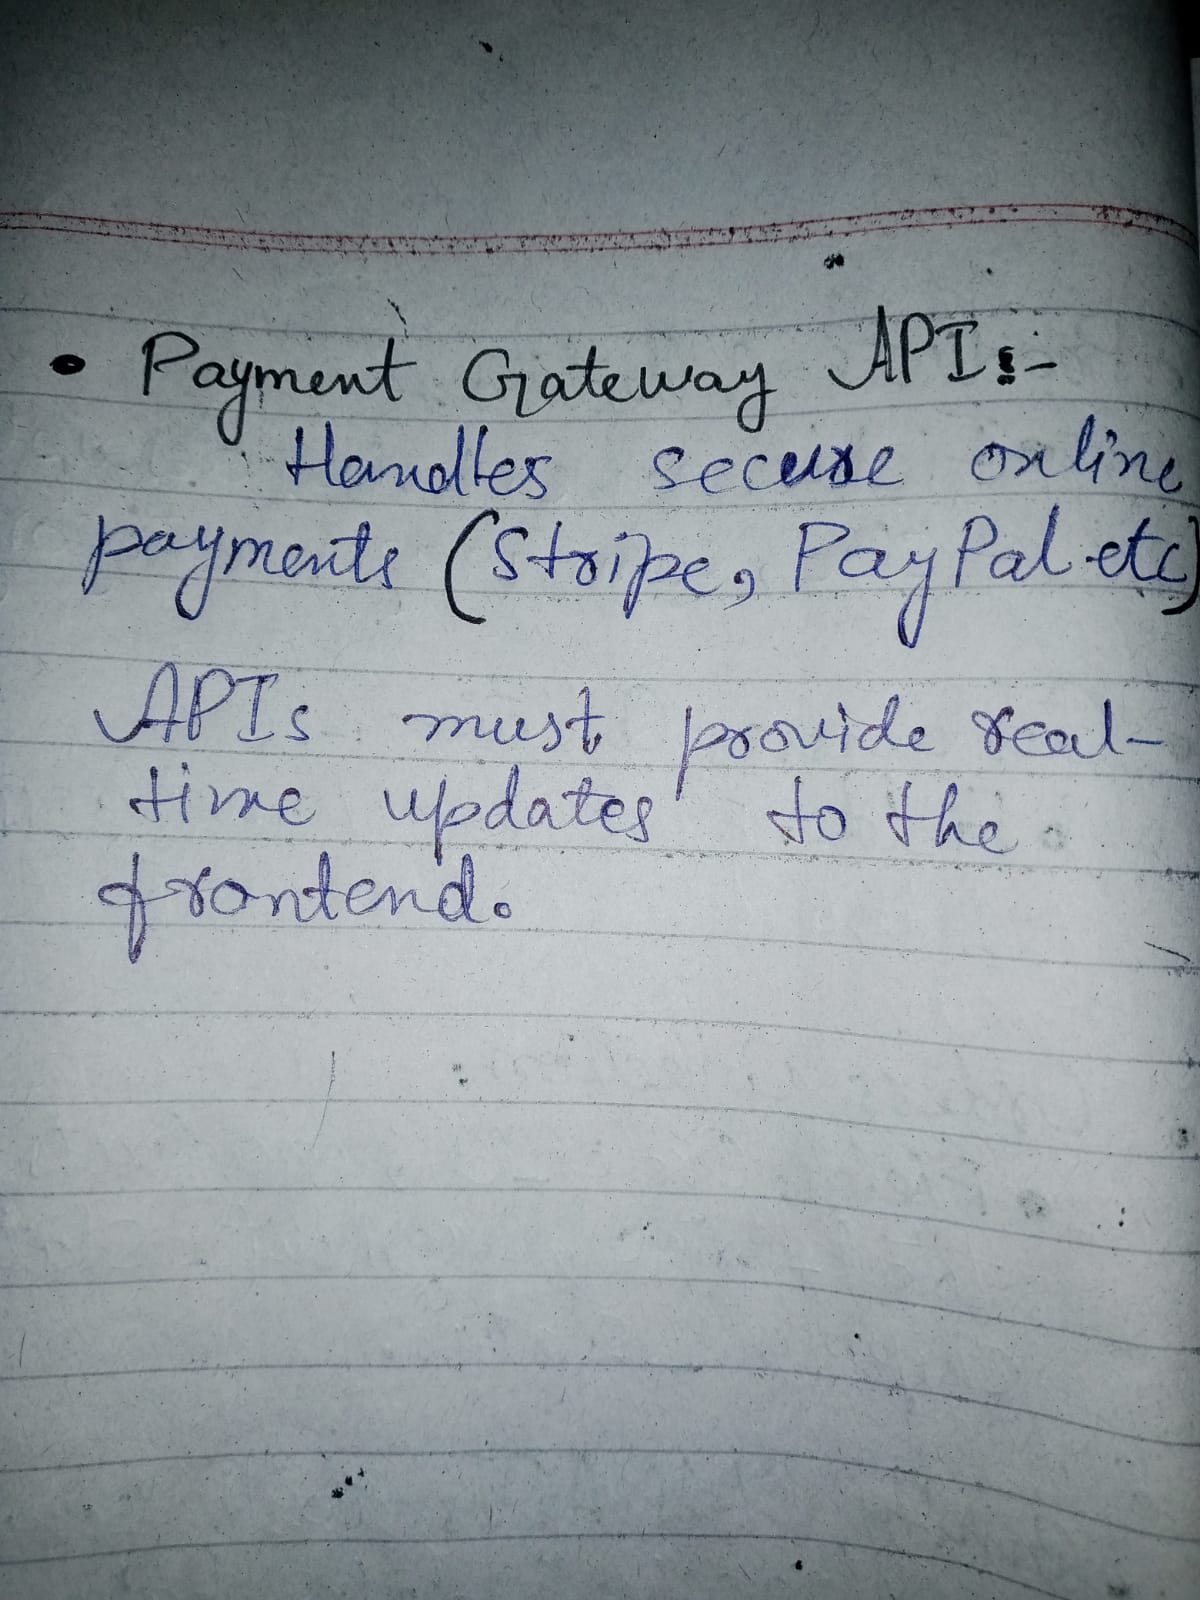 • Payment Gateway API:-
Handles secure online
payments (Stripe, PayPal etc)
APIs must provide real-
time updates to the
frontend.